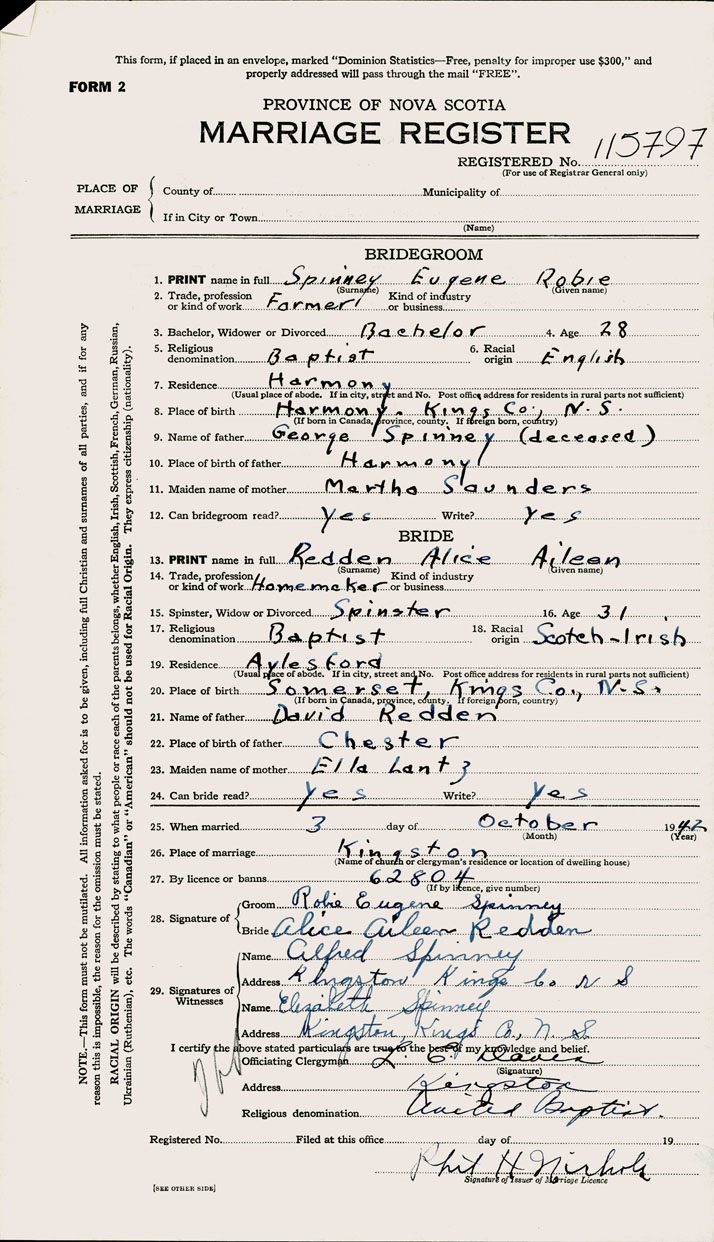 This form, if placed in an envelope, marked "Dominion Statistics—Free, penalty for improper use $300," and
properly addressed will pass through the mail "FREE".
FORM 2
PROVINCE OF NOVA SCOTIA
MARRIAGE REGISTER
REGISTERED No. 115797
(For use of Registrar General only)
PLACE OF MARRIAGE
County of Municipality of
If in City or Town
(Name)
BRIDEGROOM
1. PRINT name in full Spinney Eugene Robie
(Surname) (Given name)
2. Trade, profession or kind of work Farmer Kind of industry or business
3. Bachelor, Widower or Divorced Bachelor 4. Age 28
5. Religious denomination Baptist 6. Racial origin English
7. Residence Harmony
(Usual place of abode. If in city, street and No. Post office address for residents in rural parts not sufficient)
8. Place of birth Harmony, Kings Co., N.S.
(If born in Canada, province, county. If foreign born, country)
9. Name of father George Spinney (deceased)
10. Place of birth of father Harmony
11. Maiden name of mother Martha Saunders
12. Can bridegroom read? Yes Write? Yes
BRIDE
13. PRINT name in full Redden Alice Aileen
(Surname) (Given name)
14. Trade, profession or kind of work Homemaker Kind of industry or business
15. Spinster, Widow or Divorced Spinster 16. Age 31
17. Religious denomination Baptist 18. Racial origin Scotch-Irish
19. Residence Aylesford
(Usual place of abode. If in city, street and No. Post office address for residents in rural parts not sufficient)
20. Place of birth Somerset, Kings Co., N.S.
(If born in Canada, province, county, If foreign born, country)
21. Name of father David Redden
22. Place of birth of father Chester
23. Maiden name of mother Ella Lantz
24. Can bride read? Yes Write? Yes
25. When married 3 day of October 1942
(Month) (Year)
26. Place of marriage Kingston
(Name of church or clergyman's residence or location of dwelling house)
27. By licence or banns 62804
(If by licence, give number)
28. Signature of
Groom Robie Eugene Spinney
Bride Alice Aileen Redden
29. Signatures of Witnesses
Name Alfred Spinney
Address Kingston Kings Co N S
Name Elizabeth Spinney
Address Kingston, Kings Co., N. S.
I certify the above stated particulars are true to the best of my knowledge and belief.
Officiating Clergyman L. E. Davis
(Signature)
Address Kingston
Religious denomination United Baptist.
Registered No. Filed at this office day of 19
Phil H Nichols
Signature of Issuer of Marriage Licence
[SEE OTHER SIDE]
NOTE.—This form must not be mutilated. All information asked for is to be given, including full Christian and surnames of all parties, and if for any
reason this is impossible, the reason for the omission must be stated.
RACIAL ORIGIN will be described by stating to what people or race each of the parents belongs, whether English, Irish, Scottish, French, German, Russian,
Ukrainian (Ruthenian), etc. The words "Canadian" or "American" should not be used for Racial Origin. They express citizenship (nationality).